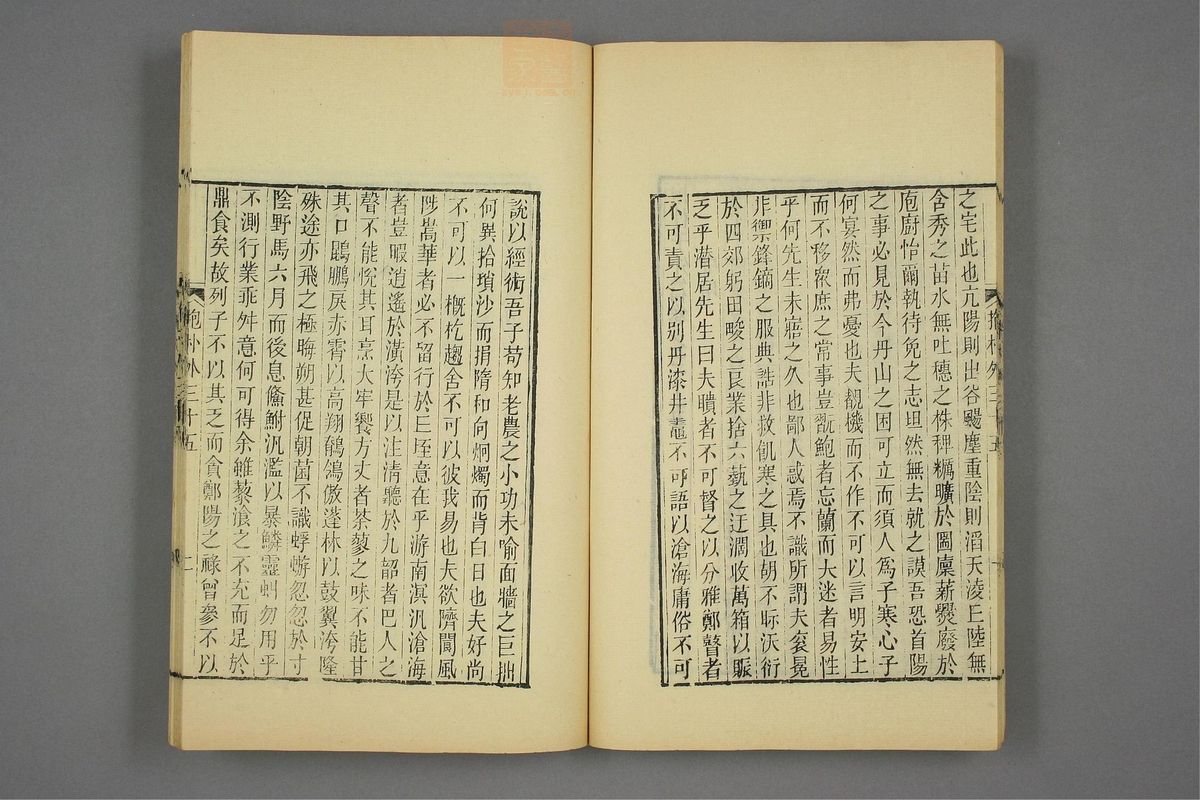 之宅此也亢陽則出谷颺塵重陰則滔天淩丘陸無
含秀之苗水無吐穗之株稗糲曠於圖廩薪爨廢於
庖廚怡爾執待免之志坦然無去就之謨吾恐首陽
之事必見於今丹山之困可立而須人為子寒心子
何宴然而弗憂也夫覩機而不作不可以言明安土
而不移衆庶之常事豈翫鮑者忘蘭而大迷者易性
乎何先生未寤之久也鄙人惑焉不識所謂夫衮冕
非禦鋒鏑之服典誥非救飢寒之具也胡不眎沃衍
於四郊躬田畯之良業捨六蓺之迂濶收萬箱以賑
乏乎潛居先生曰夫聵者不可督之以分雅鄭瞽者
不可責之以別丹漆井鼃不可語以滄海庸俗不可
抱朴外三十五
說以經術吾子苟知老農之小功未喻面牆之巨拙
何異拾瑣沙而捐隋和向炯燭而背白日也夫好尚
不可以一概杚趨舍不可以彼我易也夫欲隮閬風
陟嵩華者必不留行於丘垤意在乎游南溟汎滄海
者豈暇逍遙於潢洿是以注清聽於九韶者巴人之
聲不能悅其耳烹大牢饗方丈者荼蓼之味不能甘
其口鵾鵬戾赤霄以高翔鶺鴒傲蓬林以鼓翼洿隆
殊途亦飛之極晦朔甚促朝菌不識蜉蝣忽忽於寸
陰野馬六月而後息鯈鮒汎濫以暴鱗靈虯勿用乎
不測行業乖舛意何可得余雖藜湌之不充而足於
鼎食矣故列子不以其乏而貪鄭陽之祿曾參不以
抱朴外三十五
二